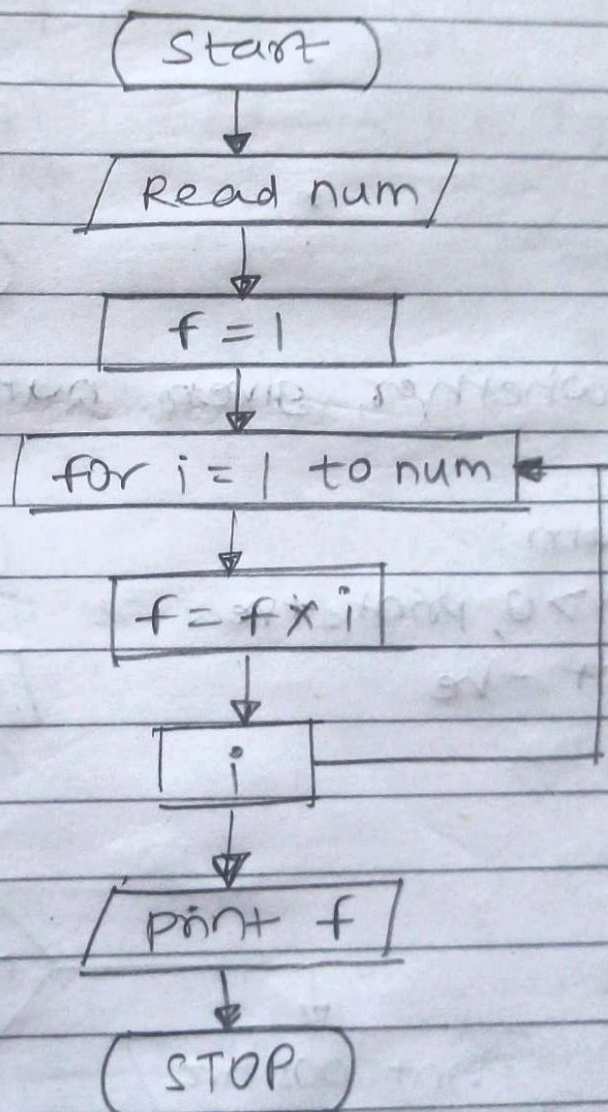 Start
Read num
f = 1
for i = 1 to num
f = f x i
i
print f
STOP